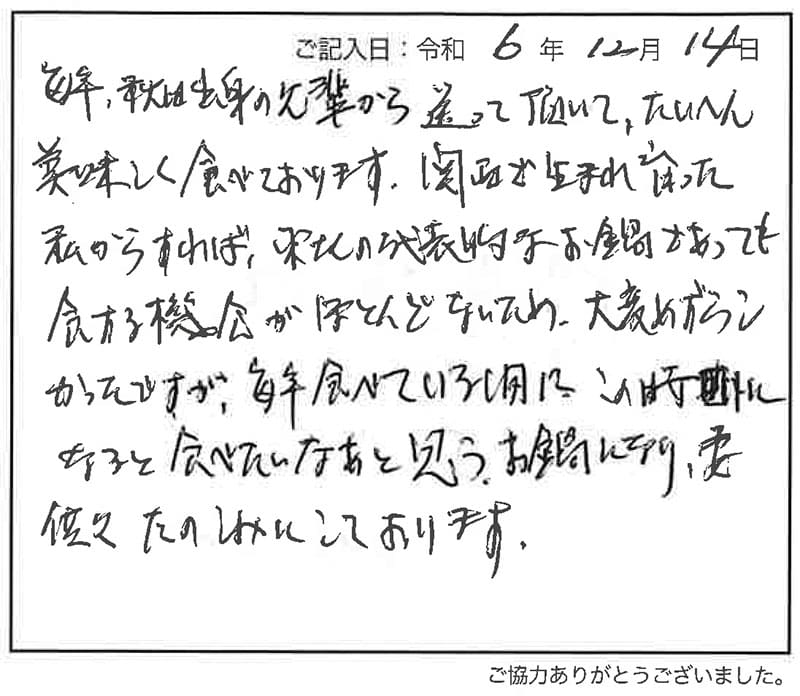 ご記入日：令和 6 年 12月 14日
毎年、秋田出身の先輩から送って頂いて、たいへん
美味しく食べております。関西で生まれ育った
私からすれば、東北の代表的なお鍋であっても
食する機会がほとんどないため、大変めずらし
かったですが、毎年食べている間に この時期に
なると食べたいなあと思うお鍋になり、妻
共々 たのしみにしております。
ご協力ありがとうございました。